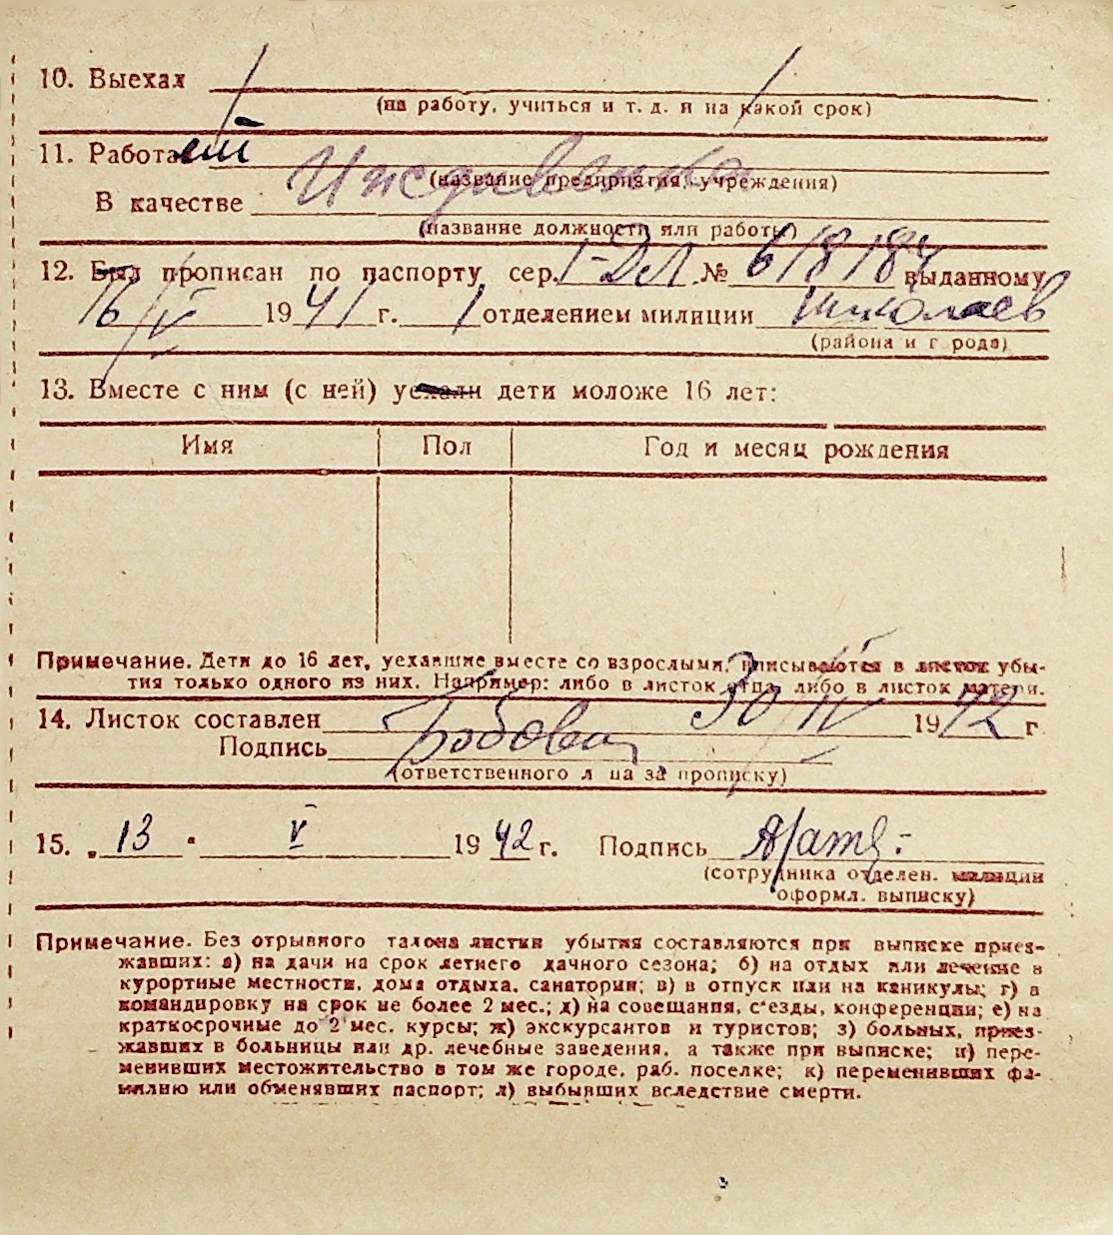 10. Выехал
(на работу, учиться и т. д. и на какой срок)
11. Работа
Иждивенка
(название предприятия, учреждения)
В качестве
(название должности или работы)
12. Был прописан по паспорту сер. I-ДЛ № 618184 выданному
16/IV 1941 г. 1 отделением милиции Николаев
(района и г рода)
13. Вместе с ним (с ней) уехали дети моложе 16 лет:
Имя Пол Год и месяц рождения
Примечание. Дети до 16 лет, уехавшие вместе со взрослыми, вписываются в листок убы-
тия только одного из них. Например: либо в листок отца, либо в листок матери.
14. Листок составлен 30/IV 1942 г
Подпись
(ответственного л ца за прописку)
15. „13 " V 1942 г. Подпись
(сотрудника отделен. милиции
оформл. выписку)
Примечание. Без отрывного талона листки убытия составляются при выписке приез-
жавших: а) на дачи на срок летнего дачного сезона; б) на отдых или лечение в
курортные местности, дома отдыха, санатории; в) в отпуск или на каникулы; г) в
командировку на срок не более 2 мес.; д) на совещания, с'езды, конференции; е) на
краткосрочные до 2 мес. курсы; ж) экскурсантов и туристов; з) больных, приез-
жавших в больницы или др. лечебные заведения, а также при выписке; и) пере-
менивших местожительство в том же городе, раб. поселке; к) переменивших фа-
милию или обменявших паспорт; л) выбывших вследствие смерти.